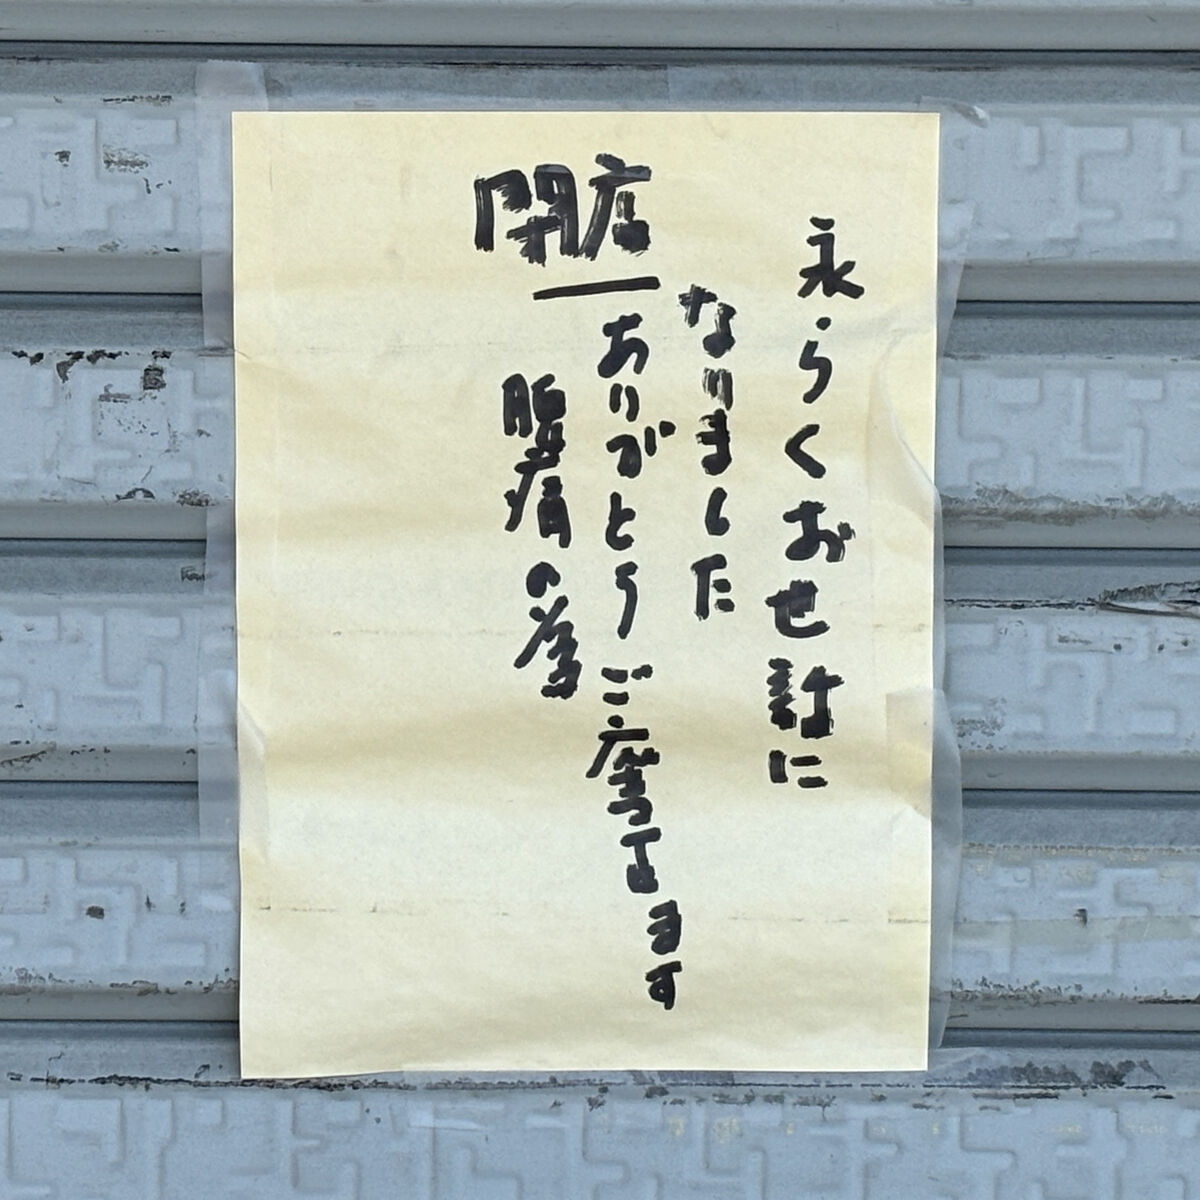 閉店
永らくお世話に
なりました
ありがとうご ます
腹痛の為